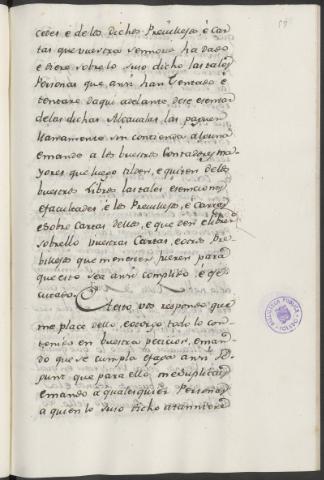 cedes è de los dichos Previllejos è Car
tas que vuestra Señoria ha dado
e diere sobre lo suso dicho las tales
Personas que ansi han tentado è
tentare daqui adelante dese esentar
de las dichas Alcavalas las paguen
llanamente sin contienda alguna
e mando a los buestros Contadores ma-
yores que luego tilden, e quiten de los
buestros Libros las tales esenciones
e facultades è los Previllejos, è Cartas
e sobre Cartas dellos, e que den è libren
sobrello buestras Cartas, e otros Pre-
billejos que menester fueren para
que esto sea ansi complido, e ese-
cutado.
A esto vos respondo que
me place dello, e otorgo todo lo con-
tenido en buestra peticion, e man-
do que se cumpla e faga ansi se-
gunt que para ello me suplicais
e mando a qualesquier Personas
a quien lo suso dicho atanniere
BIBLIOTECA PUBLICA
TOLEDO